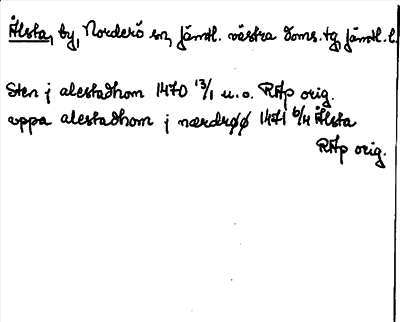 Ålsta, by, Norderö sn, Jämtl. västra doms. tg, Jämtl. l.
Sten j alestadhom 1470 13/1 u.o. RAp orig.
uppa alestadhom j nærdrøø 1471 6/4 Ålsta
RAp orig.